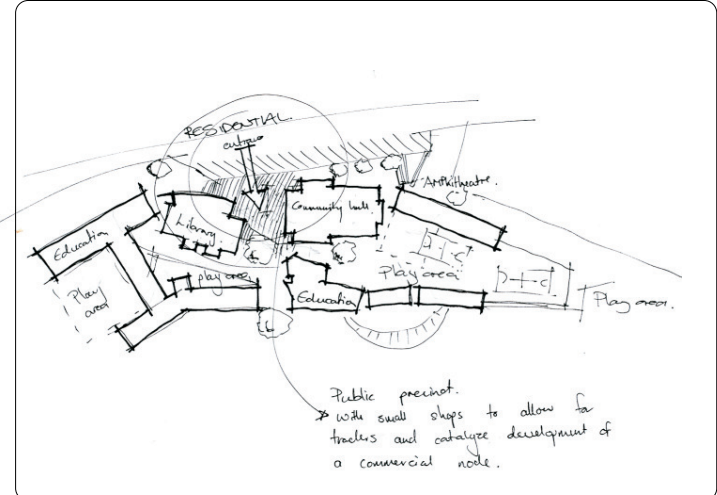 RESIDENTIAL
entrance
Amphitheatre.
Library.
Community hall.
Education
Play
area
play area
Play area
Education
Play area.
Public precinct.
with small shops to allow for
traders and catalyze development of
a commercial node.